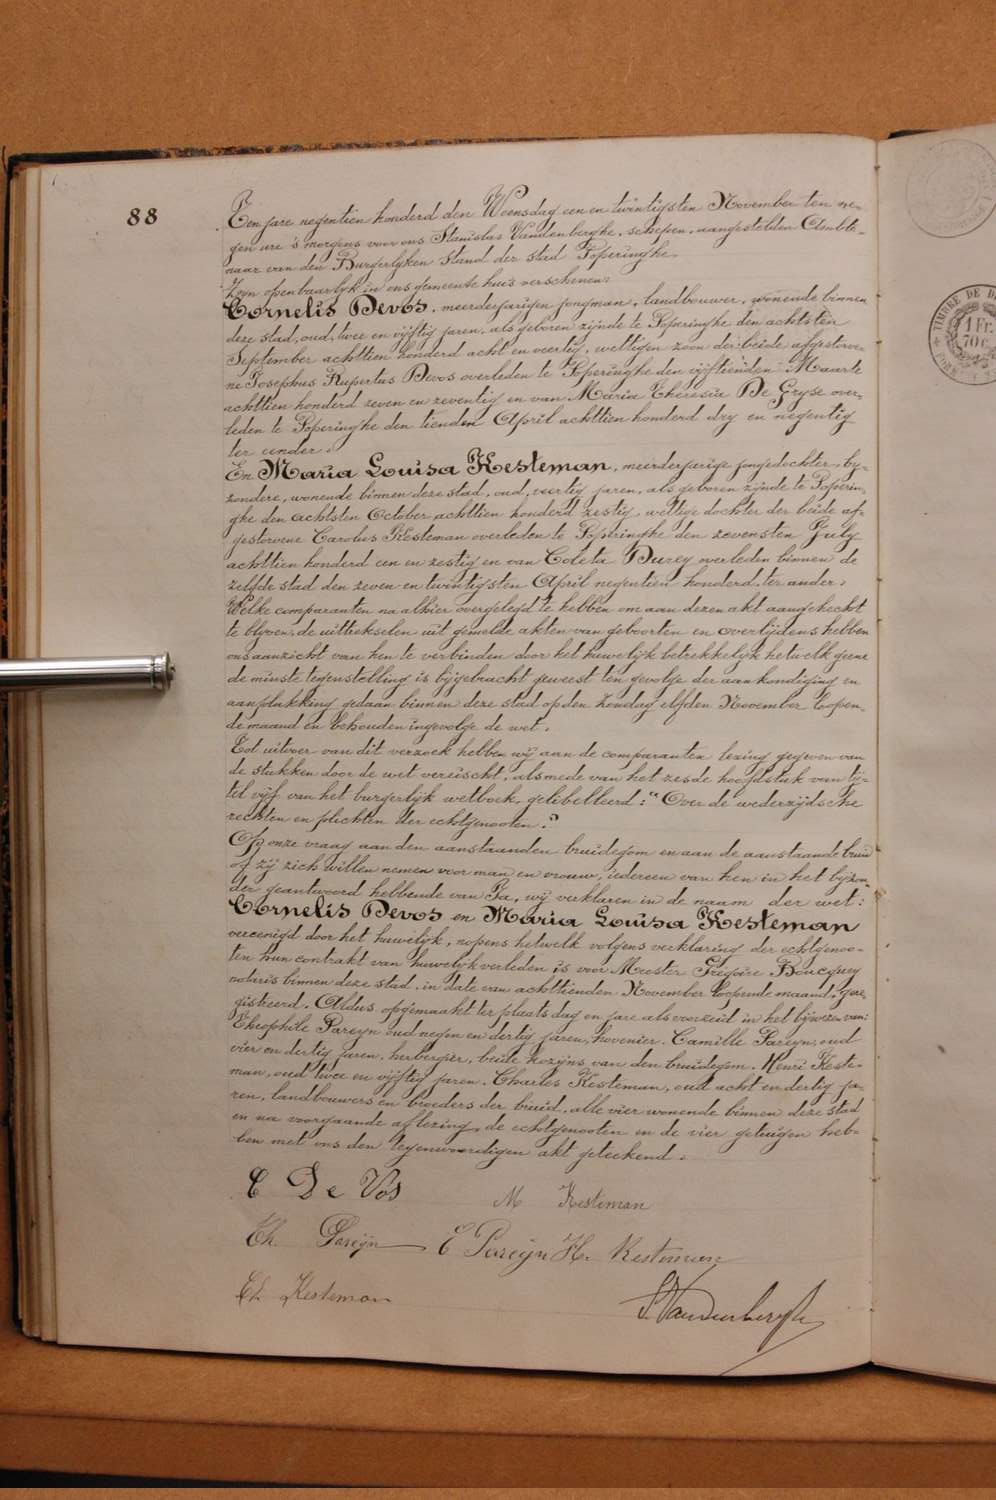 88
Ten jare negentien honderd den Woensdag een en twintigsten November ten ne-
gen ure 's morgens voor ons Stanislas Vandenberghe, schepen, aangestelden Ambte-
naar van den Burgerlyken Stand der stad Poperinghe,
Zyn openbaarlyk in ons gemeente huis verschenen:
Cornelis Devos, meerderjarigen jongman, landbouwer, wonende binnen
deze stad, oud, twee en vijftig jaren, als geboren zijnde te Poperinghe den achtsten
September achttien honderd acht en veertig, wettigen zoon der beide afgestorve-
ne Josephus Rupertus Devos overleden te Poperinghe den vijftienden Maarte
achttien honderd zeven en zeventig en van Maria Theresia De Gryse over-
leden te Poperinghe den tienden April achttien honderd dry en negentig
ter eender.
En Maria Louisa Kesteman, meerderjarige jongedochter, by-
zondere, wonende binnen deze stad, oud, veertig jaren, als geboren zijnde te Poperin-
ghe den achtsten October achttien honderd zestig, wettige dochter der beide af-
gestorvene Carolus Kesteman overleden te Poperinghe den zevensten July
achttien honderd een en zestig en van Coleta Durey overleden binnen de
zelfde stad den zeven en twintigsten April negentien honderd, ter ander.
Welke comparanten na alhier overgelegd te hebben om aan dezen akt aangehecht
te blyven, de uittrekselen uit gemelde akten van geboorten en overlijdens hebben
ons aanzicht van hen te verbinden door het huwelijk betrekkelyk hetwelk geene
de minste tegenstelling is bijgebracht geweest ten gevolge der aankondiging en
aanplakking gedaan binnen deze stad op den Zondag elfden November loopen-
de maand en behouden ingevolge de wet.
Tot uitvoer van dit verzoek hebben wij aan de comparanten lezing gegeven van
de stukken door de wet vereischt, alsmede van het zesde hoofdstuk van tij-
tel vijf van het burgerlijk wetboek, gelibelleerd: "Over de wederzijdsche
rechten en plichten der echtgenooten."
Op onze vraag aan den aanstaanden bruidegom en aan de aanstaande bruid
of zij zich willen nemen voor man en vrouw, iedereen van hen in het bijzon-
der geantwoord hebbende van Ja, wij verklaren in de naam der wet:
Cornelis Devos en Maria Louisa Kesteman
vereenigd door het huwelijk, nopens hetwelk volgens verklaring der echtgenoo-
ten hun contrakt van huwelyk verleden is voor Meester Gregoire Boucquey
notaris binnen deze stad, in date van achttienden November loopende maand, gere-
gistreerd. Aldus opgemaakt ter plaats dag en jare als voorzeid in het bijwezen van:
Theophile Pareyn oud negen en dertig jaren, hovenier. Camille Pareyn, oud
vier en dertig jaren, herbergier, beide kozijns van den bruidegom. Henri Keste-
man, oud twee en vijftig jaren. Charles Kesteman, oud acht en dertig ja-
ren, landbouwers en broeders der bruid, alle vier wonende binnen deze stad
en na voorgaande aflezing, de echtgenooten en de vier getuigen heb-
ben met ons den tegenwoordigen akt geteekend.
C De Vos M Kesteman
Th. Pareijn C Pareijn H. Kesteman
Ch Kesteman S. Vandenberghe
TIMBRE DE D
1 Fr.
70 c.